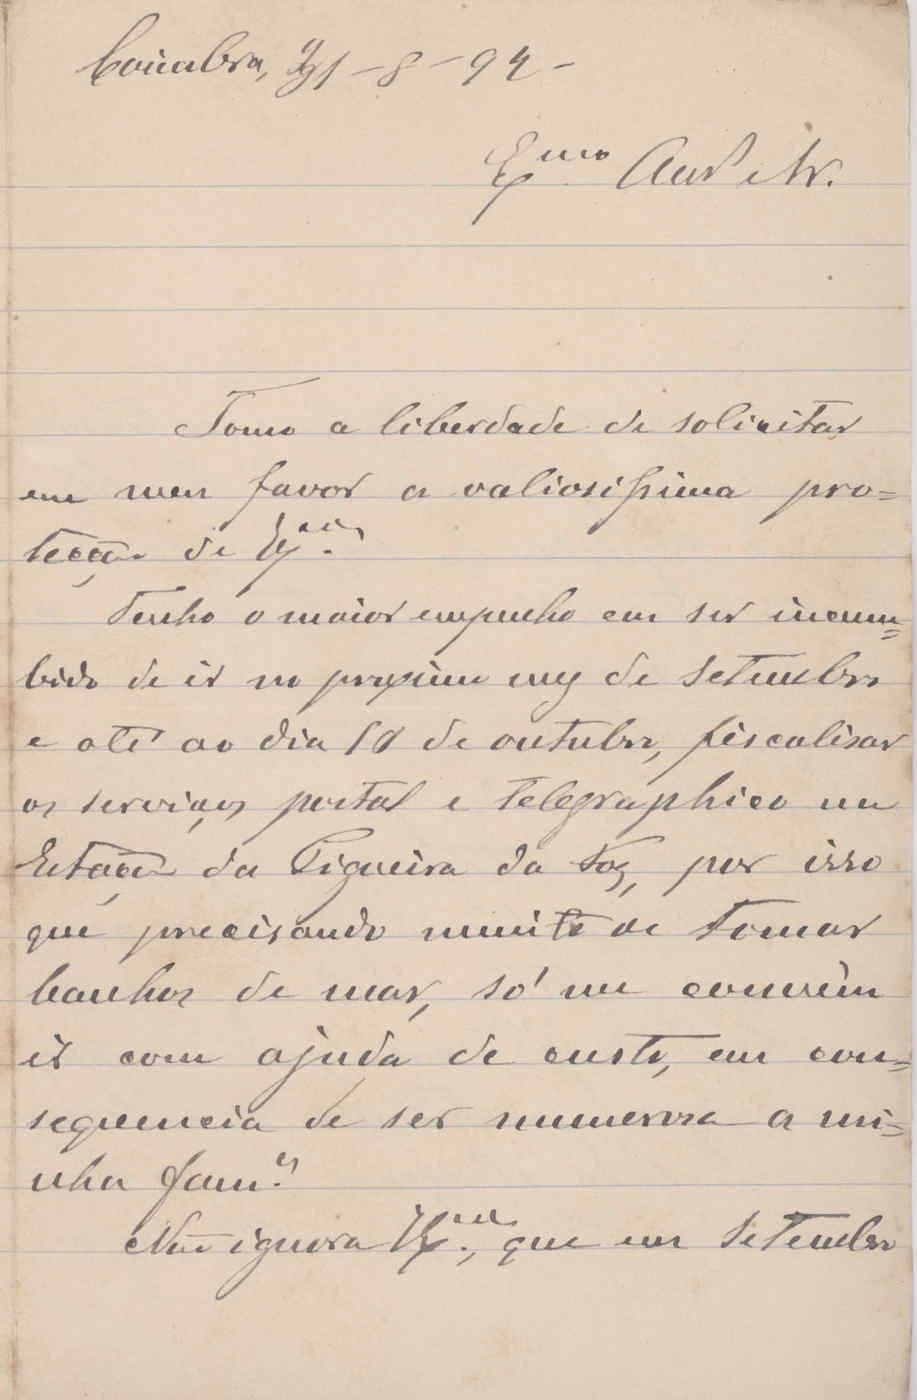 Coimbra, 31-8-94-
Exmo Amo e Sr.
Tomo a liberdade de solicitar
em meu favor a valiosissima pro=
tecção de V. Exa.
Tenho o maior empenho em ser incum=
bido de ir no proximo mez de Setembro
e até ao dia 10 de outubro, fiscalisar
os serviços postal e telegraphico na
Estação da Figueira da Foz, por isso
que precisando muito de tomar
banhos de mar, só me convêm
ir com ajuda de custo, em con=
sequencia de ser numerosa a mi=
nha fama.
Não ignora V. Exa., que em Setembro